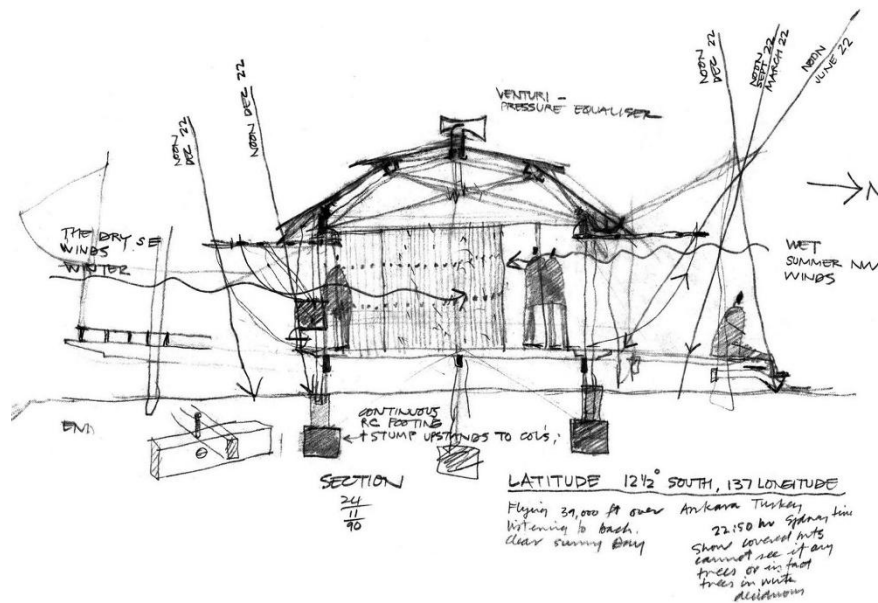 NOON
DEC 22
NOON DEC 22
VENTURI -
PRESSURE EQUALISER
NOON
DEC 22
NOON
SEPT 22
MARCH 22
NOON
JUNE 22
N
THE DRY. SE
WINDS
WINTER
WET
SUMMER NW
WINDS
END
CONTINUOUS
RC FOOTING
+ STUMP UPSTANDS TO COL'S,
SECTION
24
11
90
LATITUDE 12½° SOUTH, 137 LONGITUDE
Flying 39,000 ft over Ankara Turkey
listening to Bach.
Clear sunny Day
22:50 hr Sydney time
Snow covered mts
cannot see if any
trees or in fact
trees in white
deciduous